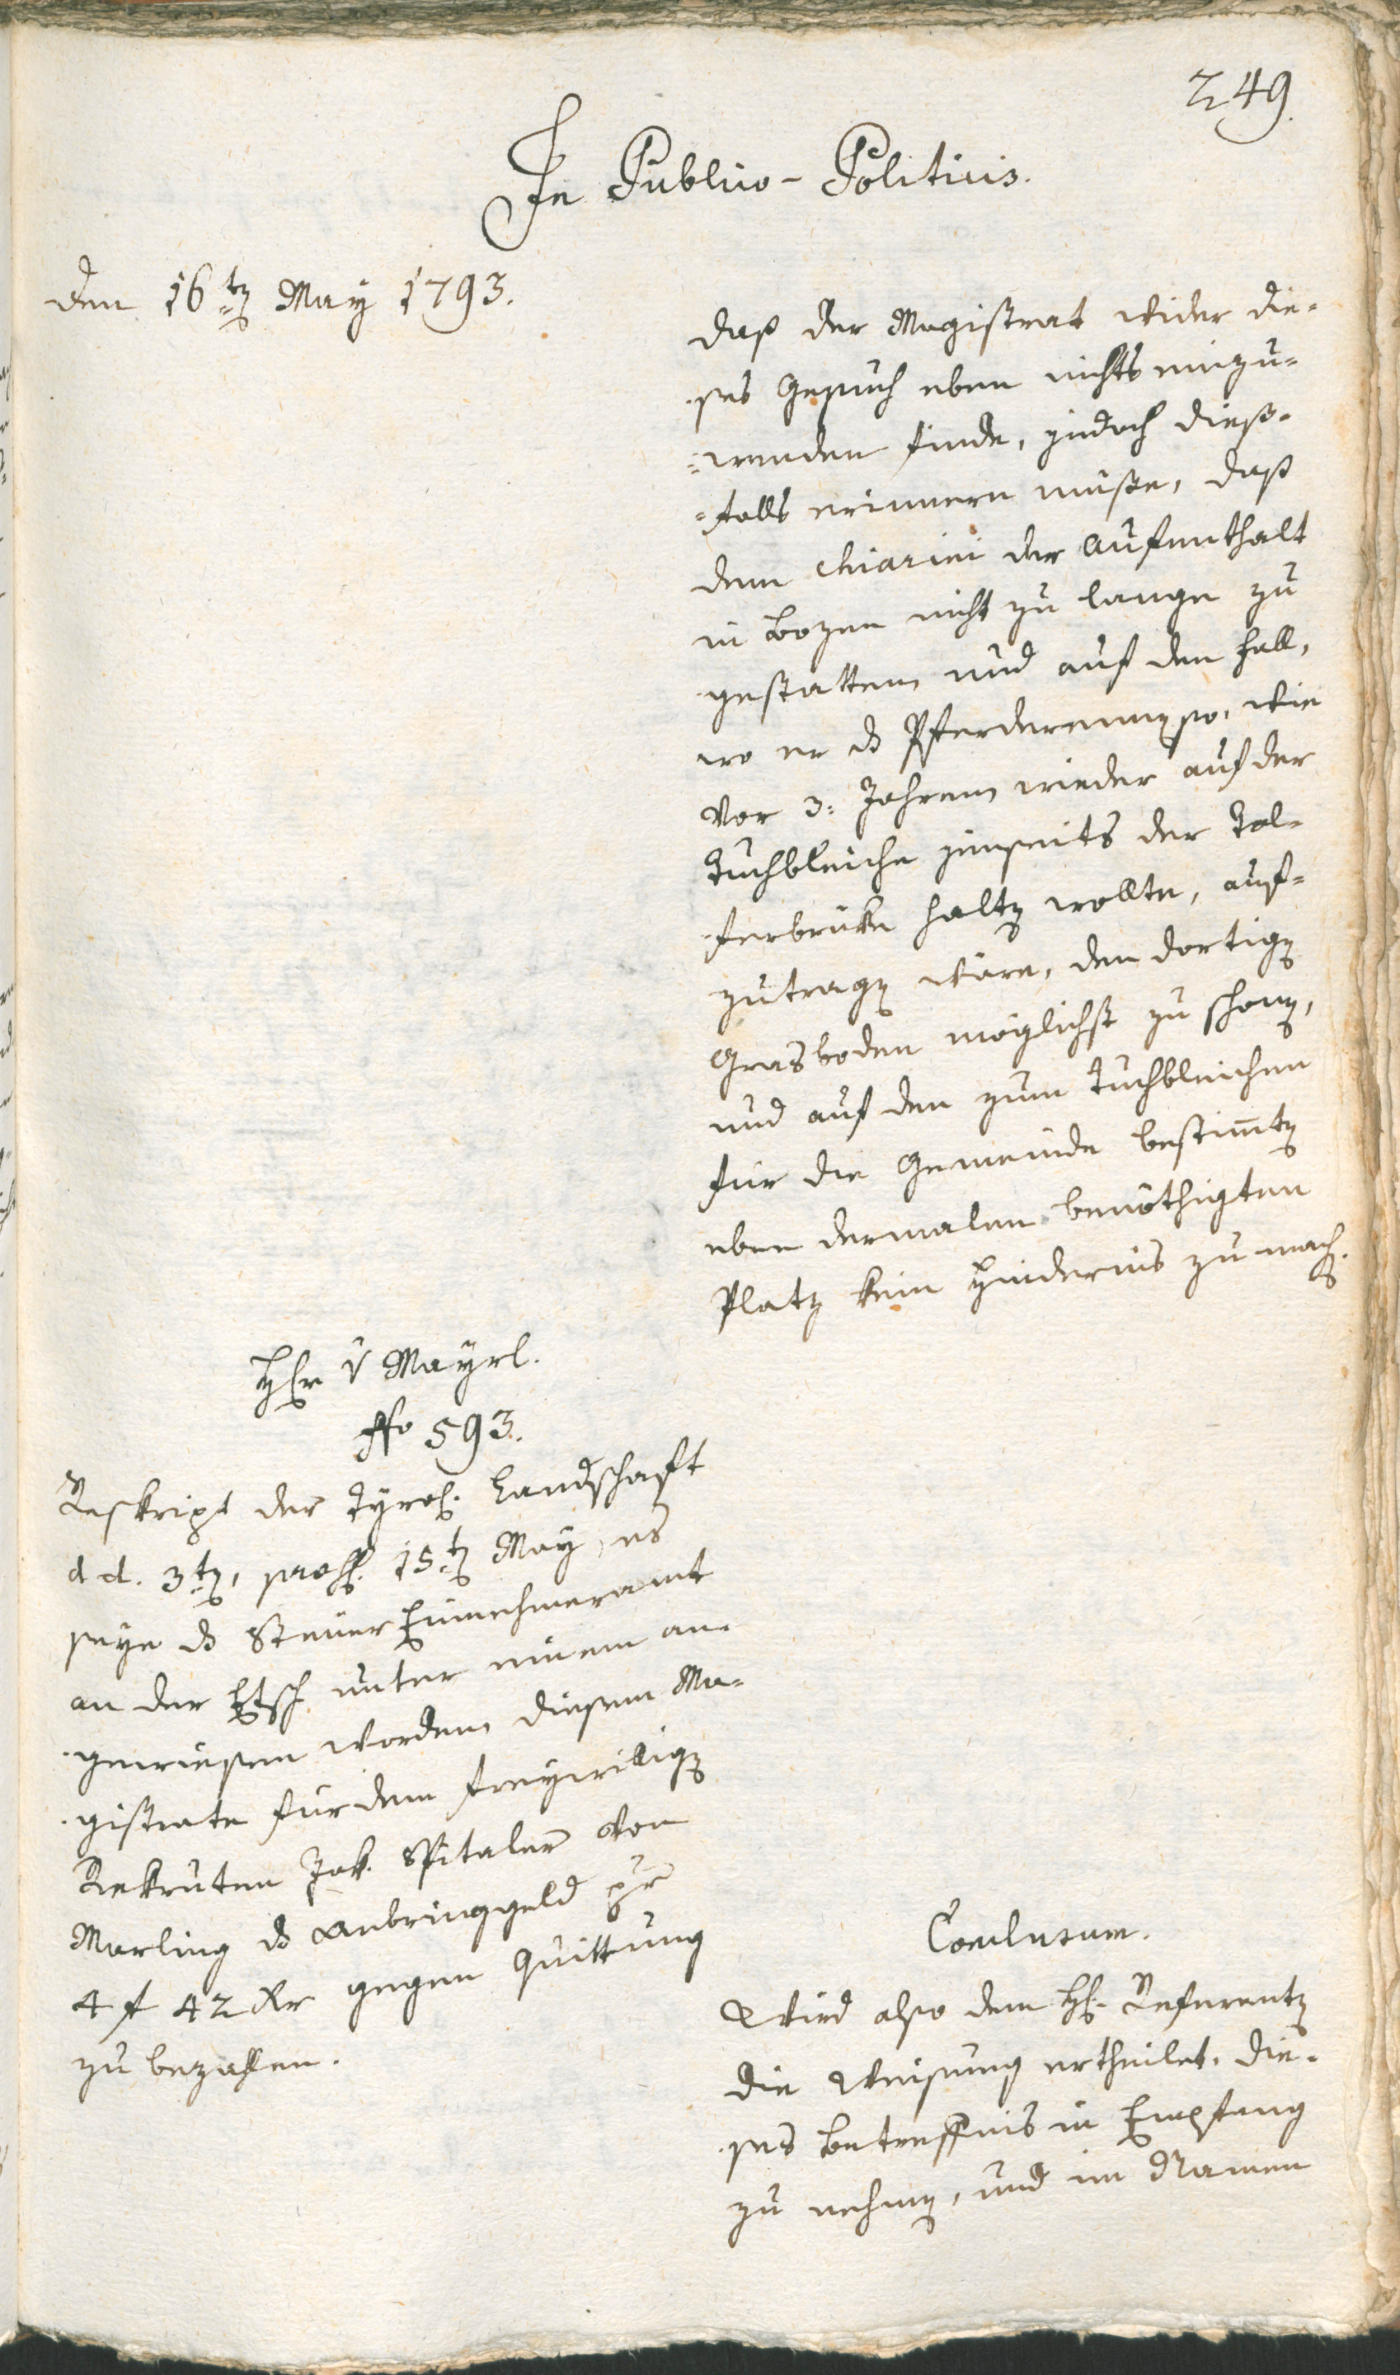 249.
In Publico-Politicis.
den 16ten May 1793.
daß der Magistrat wider die-
ses Gesuch eben nichts einzu-
wenden finde, jedoch dieß-
falls erinnern müße, daß
dem Chiarini der Aufenthalt
in Bozen nicht zu lange zu
gestatten und auf den Fall,
wo er ds Pferderennen so, wie
vor 3: Jahren wieder auf der
Tuchbleiche jenseits der Tal-
ferbruke halten wollte, auf-
zutragen wäre, den dortigen
Grasboden möglichst zu schonen,
und auf den zum Tuchbleichen
für die Gemeinde bestimten
eben dermalen benöthigten
Platz kein Hindernis zu machen.
Hr v Mayrl.
No 593.
Reskript der Tyrol. Landschaft
d d. 3ten, 15ten May, es
seye ds Steuer Einnehmeramt
an der Etsch unter einem an-
gewiesen worden diesem Ma-
gistrate für dem freywilligen
Rekruten Jak. Spitaler von
Marling ds Anbringgeld pr
4 f 42 kr gegen Quittung
zu bezahlen.
Conclusum.
Wird also dem H. Referenten
die Weisung ertheilet, die-
ses Betreffnis in Empfang
zu nehmen, und im Namen